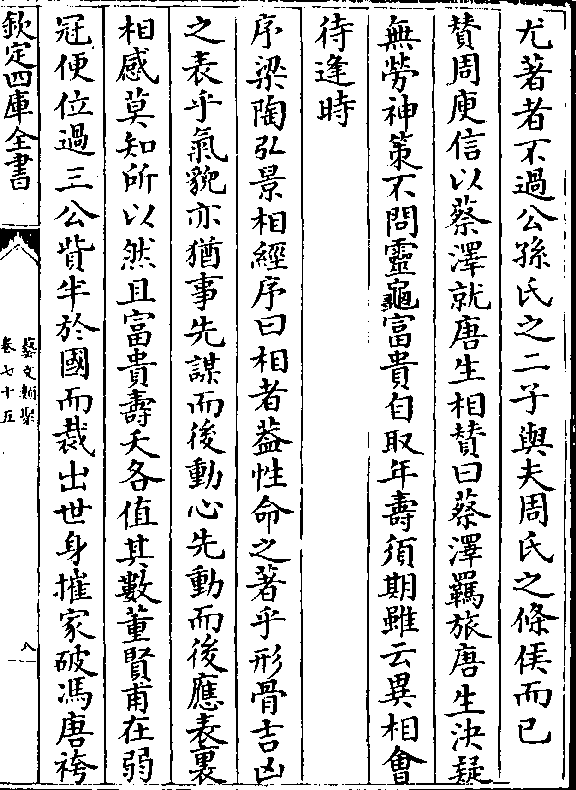 尤著者不過公孫氏之二子與夫周氏之條侯而已
賛周庾信以蔡澤就唐生相賛曰蔡澤羈旅唐生決疑
無勞神策不問靈龜富貴自取年壽須期雖云異相會
待逢時
序梁陶弘景相經序曰相者葢性命之著乎形骨吉凶
之表乎氣貌亦猶事先謀而後動心先動而後應表裏
相感莫知所以然且富貴壽夭各值其數董賢甫在弱
冠便位過三公貲半於國而裁出世身摧家破馮唐袴
欽定四庫全書
藝文類聚
卷七十五
八